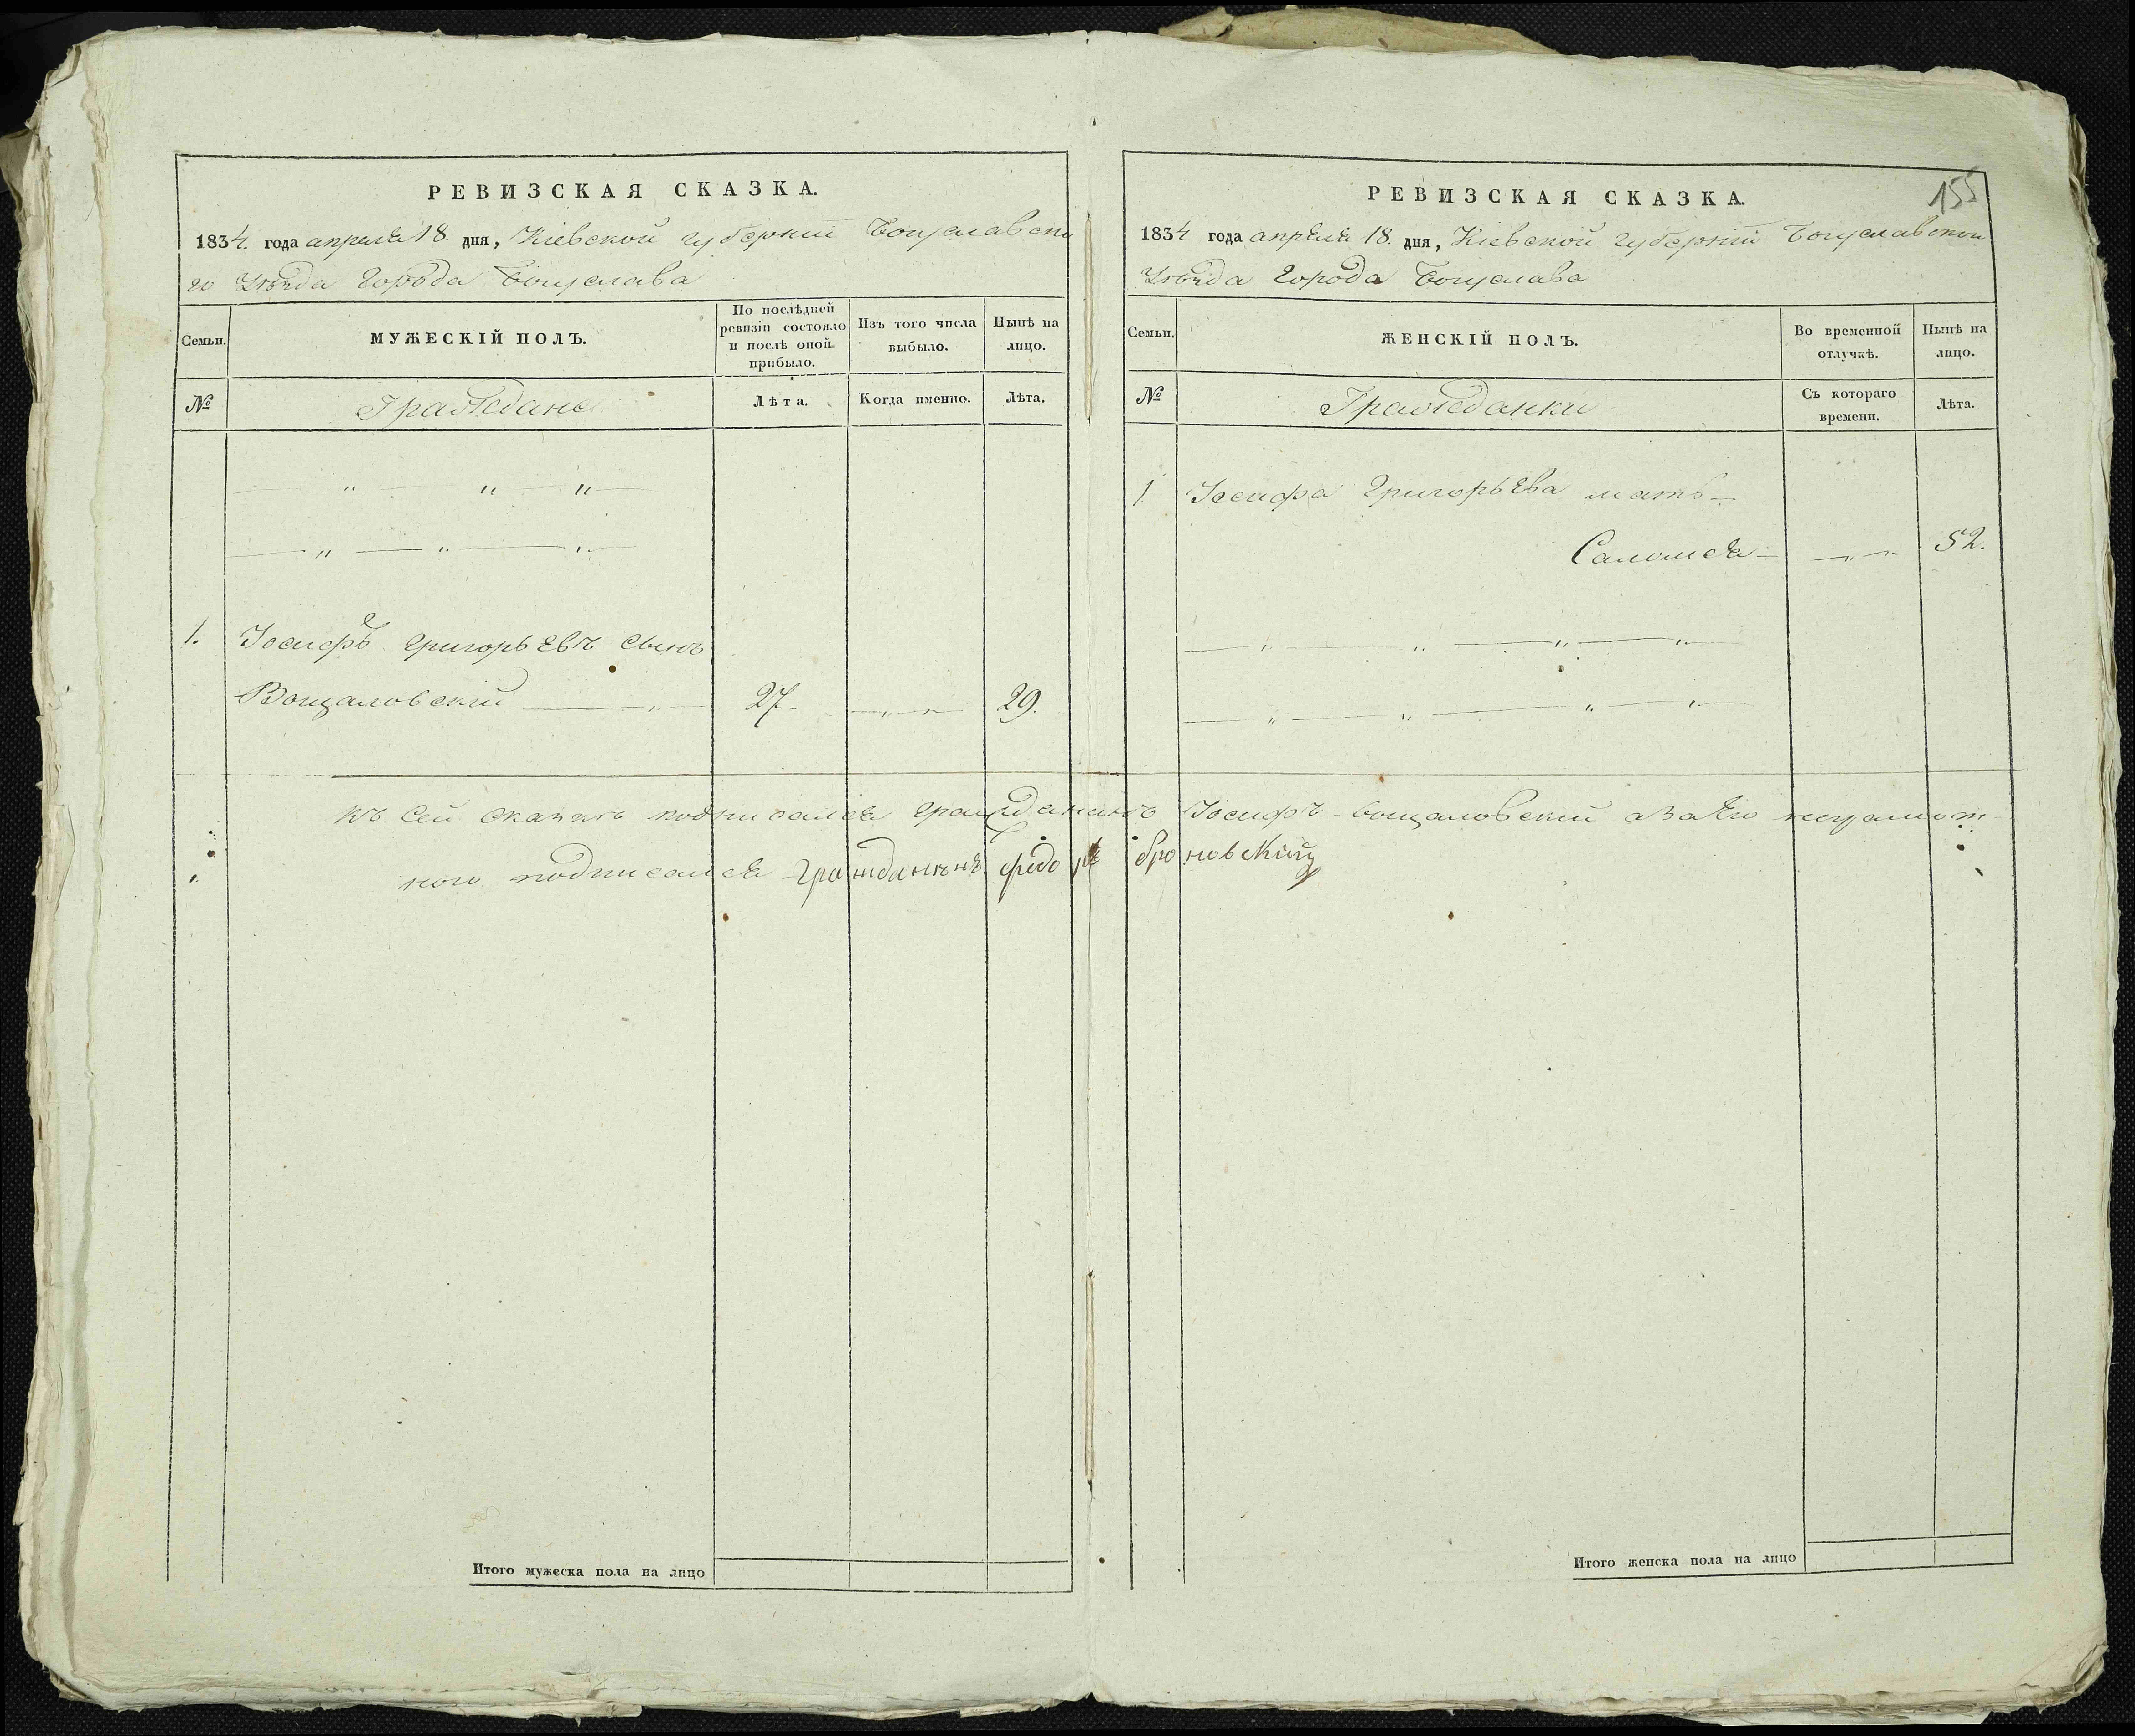 155
РЕВИЗСКАЯ СКАЗКА.
1834. года апреля 18. дня, Кіевской губерніи Богуславска
го Уѣзда Города Богуслава
Семьи.
МУЖЕСКІЙ ПОЛЪ.
По послѣдней ревизіи состояло и послѣ оной прибыло.
Изъ того числа выбыло.
Нынѣ на лицо.
№
Граждане
Лѣта.
Когда именно.
Лѣта.
1. Іосифъ Григорьевъ сынъ
Вощаловскій 27. 29.
РЕВИЗСКАЯ СКАЗКА.
1834 года апреля 18. дня, Кіевской губерніи Богуславского
Уѣзда Города Богуслава
Семьи.
ЖЕНСКІЙ ПОЛЪ.
Во временной отлучкѣ.
Нынѣ на лицо.
№
Гражданки
Съ котораго времени.
Лѣта.
1 Іосифа Григорьева мать
Саломея 52.
къ сей сказкѣ подписался гражданинъ Іосифъ вощаловский а за его неграмот
ного подписался гражданинъ броновский
Итого мужеска пола на лицо
Итого женска пола на лицо